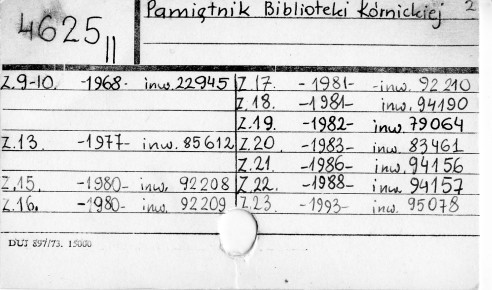 4625 II
Pamiętnik Biblioteki Kórnickiej 2
Z.9-10. -1968- inw. 22945
Z.13. -1977- inw. 85612
Z.15. -1980- inw. 92208
Z.16. -1980- inw. 92209
Z.17. -1981- inw. 92210
Z.18. -1981- inw. 94190
Z.19. -1982- inw. 79064
Z.20 -1983- inw. 83461
Z.21 -1986- inw. 94156
Z.22. -1988- inw. 94157
Z.23. -1993- inw. 95078
DUJ 897/73. 15000